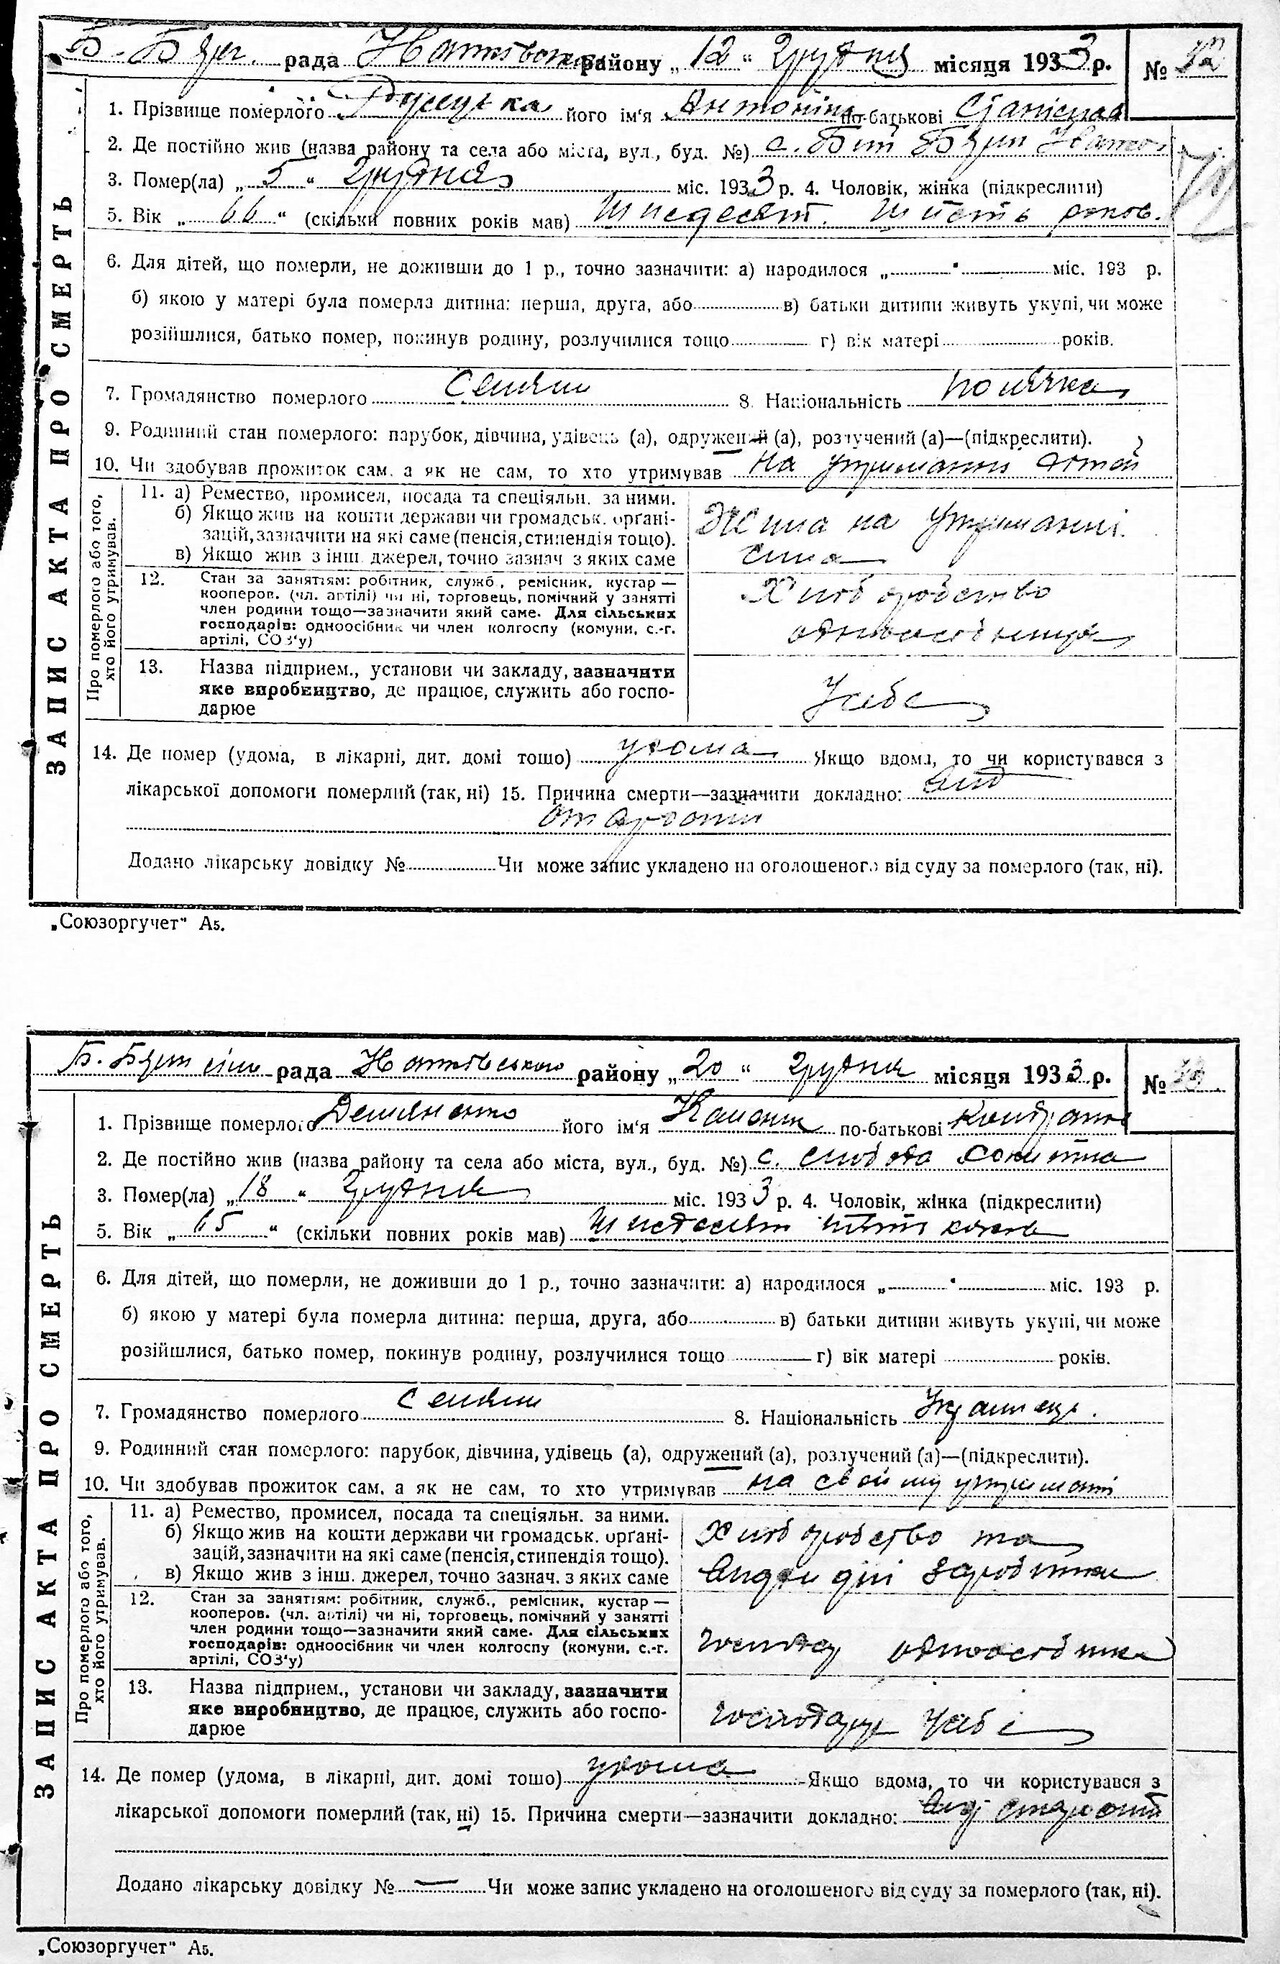 Б. Бярг. рада району „12“ Грудня місяця 1933 р. № 12
1. Прізвище померлого його ім'я Антоніна по-батькові Станіслав
2. Де постійно жив (назва району та села або міста, вул., буд. №) с.
3. Помер(ла) „5“ Грудня міс. 1933 р. 4. Чоловік, жінка (підкреслити)
5. Вік „66“ (скільки повних років мав) Шисдесят Шисть років.
6. Для дітей, що померли, не доживши до 1 р., точно зазначити: а) народилося „ “ міс. 193 р.
б) якою у матері була померла дитина: перша, друга, або в) батьки дитини живуть укупі, чи може
розійшлися, батько помер, покинув родину, розлучилися тощо г) вік матері років.
7. Громадянство померлого Селяни 8. Національність полячка
9. Родинний стан померлого: парубок, дівчина, удівець (а), одружений (а), розлучений (а)—(підкреслити).
10. Чи здобував прожиток сам, а як не сам, то хто утримував на утриманні
ЗАПИС АКТА ПРО СМЕРТЬ
Про померлого або того, хто його утримував.
11. а) Ремество, промисел, посада та спеціяльн. за ними.
б) Якщо жив на кошти держави чи громадськ. органі-
зацій, зазначити на які саме (пенсія, стипендія тощо).
в) Якщо жив з інш. джерел, точно зазнач з яких саме
Жила на утриманні
сина
12. Стан за занятіям: робітник, служб., ремісник, кустар—
кооперов. (чл. артілі) чи ні, торговець, помічний у занятті
член родини тощо—зазначити який саме. Для сільських
господарів: одноосібник чи член колгоспу (комуни, с.-г.
артілі, СОЗ'у)
Хліборобство
одноосібниця
13. Назва підприєм., установи чи закладу, зазначити
яке виробництво, де працює, служить або госпо-
дарює
Усебе
14. Де помер (удома, в лікарні, дит. домі тощо) удома Якщо вдома, то чи користувався з
лікарської допомоги померлий (так, ні) 15. Причина смерти—зазначити докладно: від
старости
Додано лікарську довідку № Чи може запис укладено на оголошеного від суду за померлого (так, ні).
„Союзоргучет“ А5.
Б. рада району „20“ Грудня місяця 1933 р. №
1. Прізвище померлого Демяненко його ім'я по-батькові
2. Де постійно жив (назва району та села або міста, вул., буд. №) с. слобода
3. Помер(ла) „18“ Грудня міс. 1933 р. 4. Чоловік, жінка (підкреслити)
5. Вік „65“ (скільки повних років мав) Шисдесят пять
6. Для дітей, що померли, не доживши до 1 р., точно зазначити: а) народилося „ “ міс. 193 р.
б) якою у матері була померла дитина: перша, друга, або в) батьки дитини живуть укупі, чи може
розійшлися, батько помер, покинув родину, розлучилися тощо г) вік матері років.
7. Громадянство померлого селяни 8. Національність Украінець.
9. Родинний стан померлого: парубок, дівчина, удівець (а), одружений (а), розлучений (а)—(підкреслити).
10. Чи здобував прожиток сам, а як не сам, то хто утримував на своїму утриманні
ЗАПИС АКТА ПРО СМЕРТЬ
Про померлого або того, хто його утримував.
11. а) Ремество, промисел, посада та спеціяльн. за ними.
б) Якщо жив на кошти держави чи громадськ. органі-
зацій, зазначити на які саме (пенсія, стипендія тощо).
в) Якщо жив з інш. джерел, точно зазнач. з яких саме
Хліборобство та
заробітки
12. Стан за занятіям: робітник, служб., ремісник, кустар—
кооперов. (чл. артілі) чи ні, торговець, помічний у занятті
член родини тощо—зазначити який саме. Для сільських
господарів: одноосібник чи член колгоспу (комуни, с.-г.
артілі, СОЗ'у)
одноосібник
13. Назва підприєм., установи чи закладу, зазначити
яке виробництво, де працює, служить або госпо-
дарює
господарує усебе
14. Де помер (удома, в лікарні, дит. домі тощо) удома Якщо вдома, то чи користувався з
лікарської допомоги померлий (так, ні) 15. Причина смерти—зазначити докладно: від старости
Додано лікарську довідку № — Чи може запис укладено на оголошеного від суду за померлого (так, ні).
„Союзоргучет“ А5.